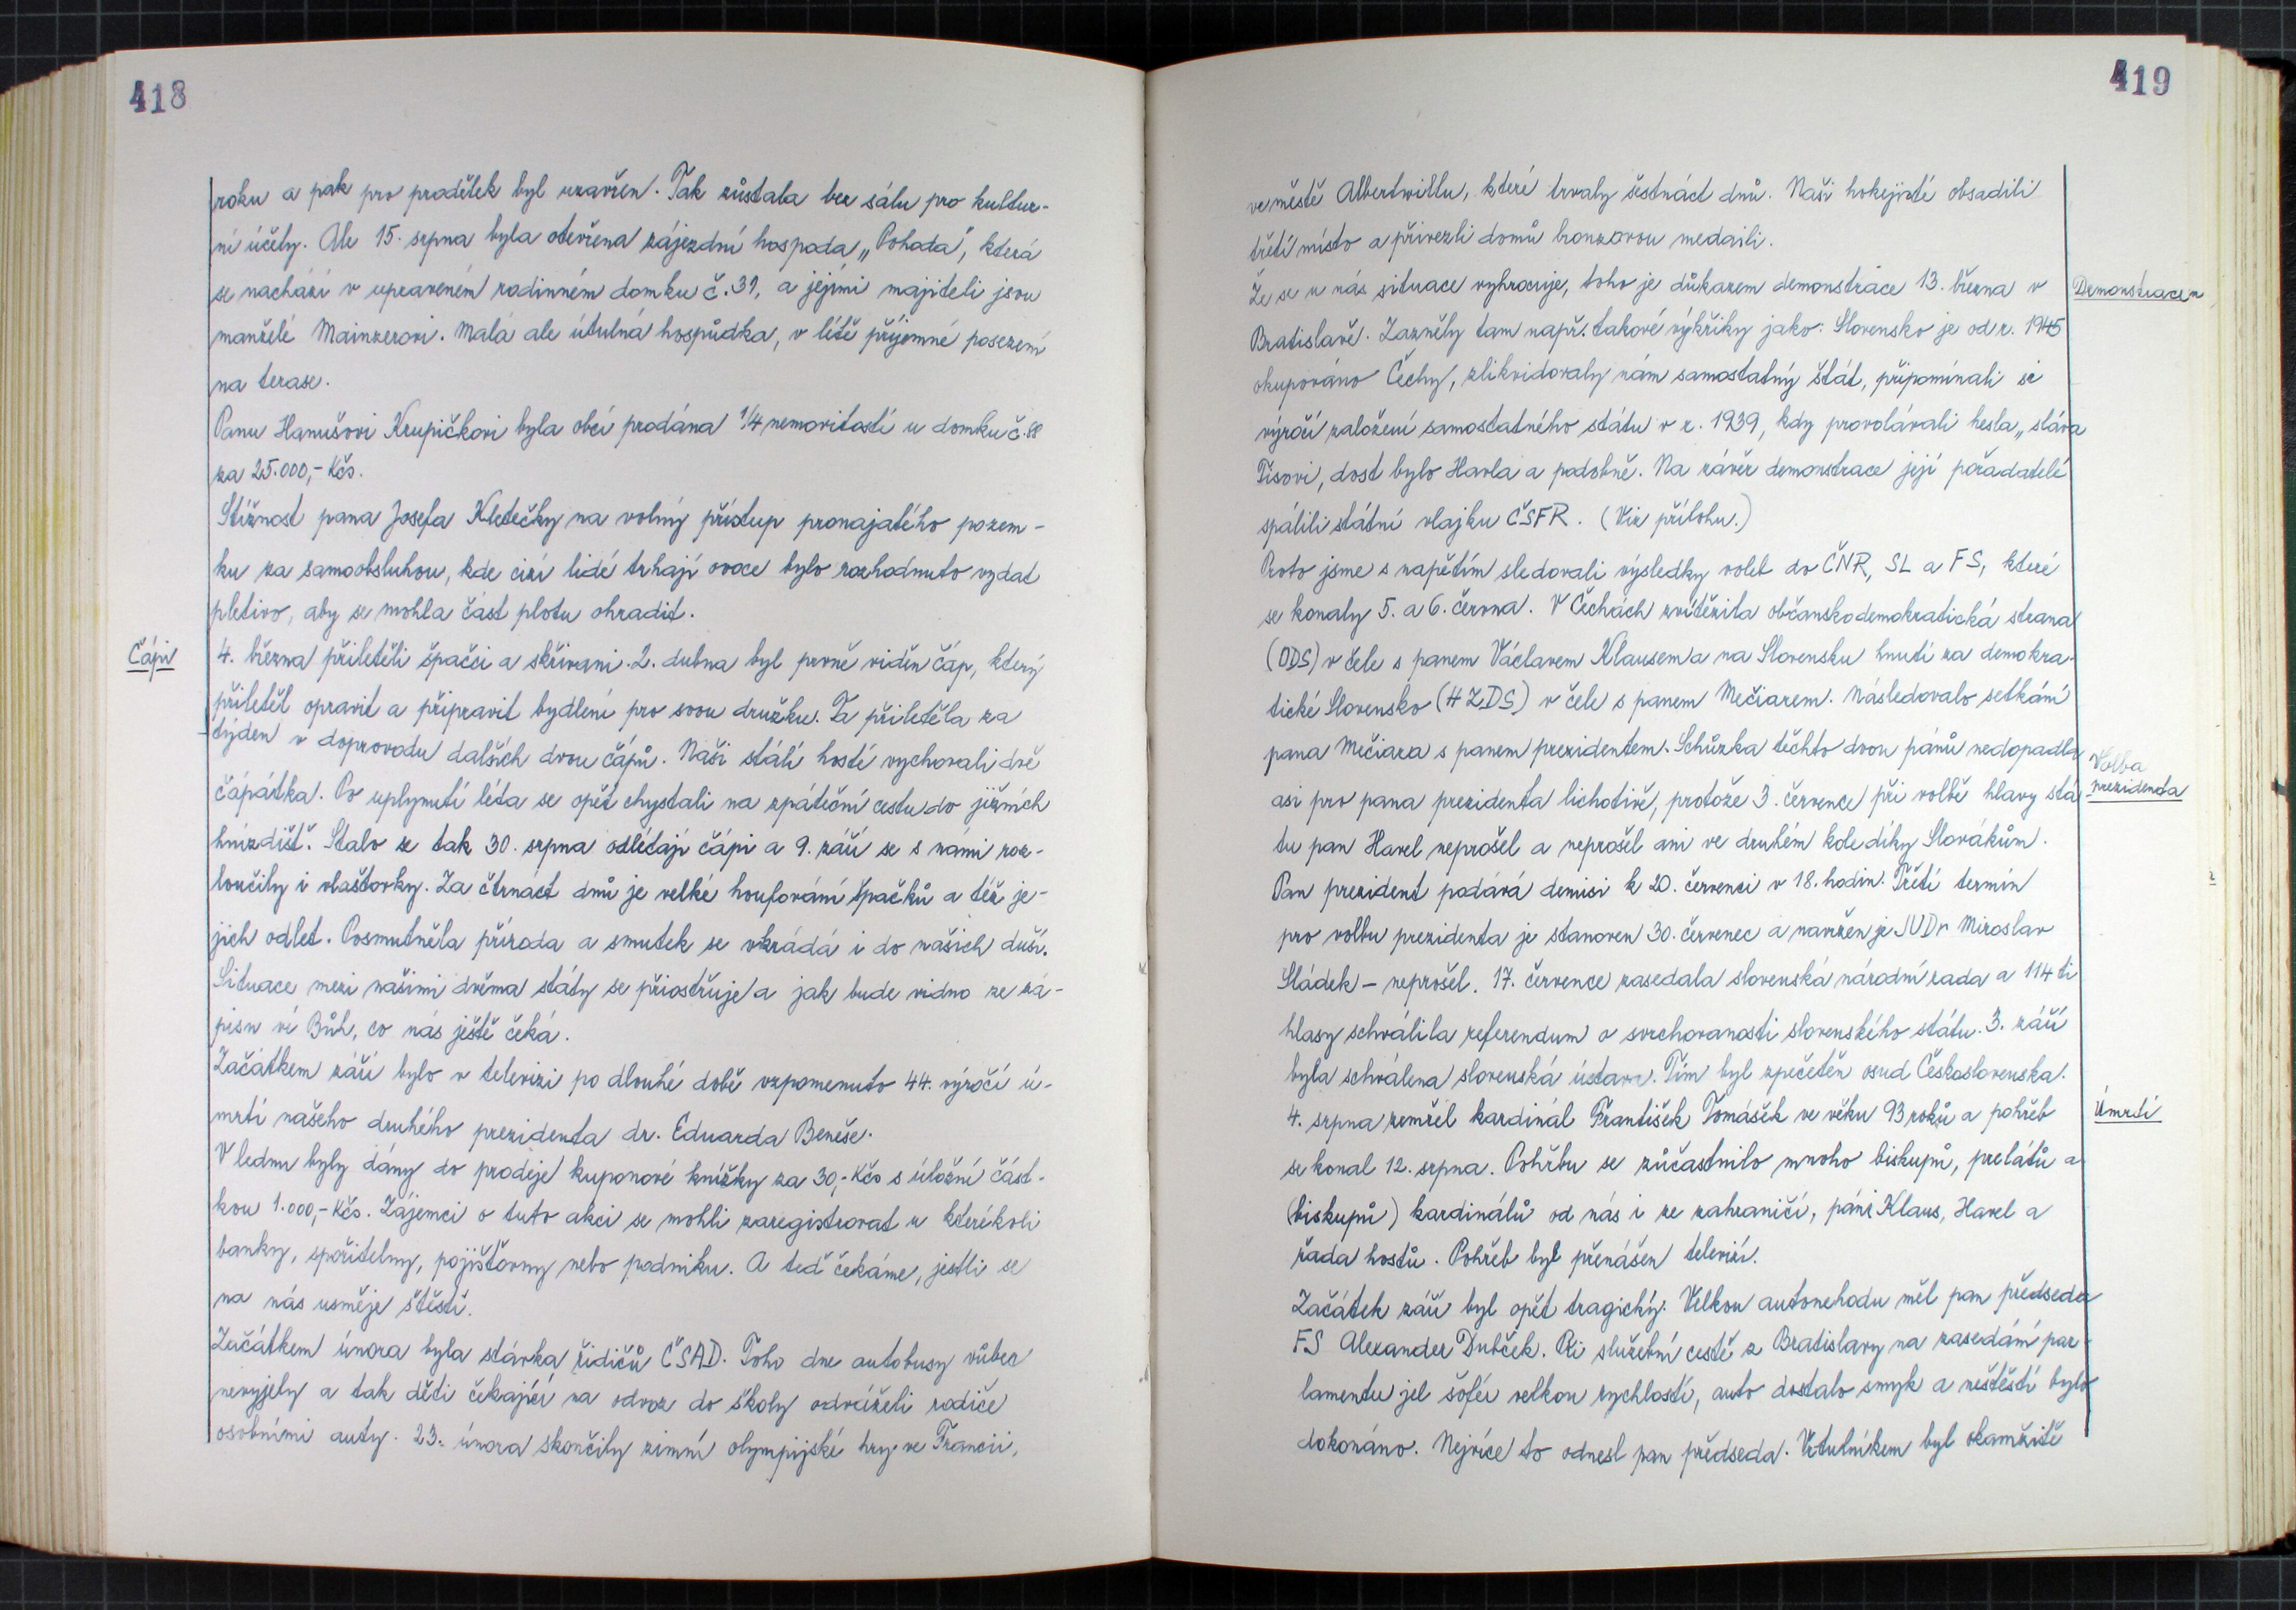 418
roku a pak pro prodělek byl uzavřen. Tak zůstala bez sálu pro kultur-
ní účely. Ale 15. srpna byla otevřena zájezdní hospoda „Pohoda", která
se nachází v upraveném rodinném domku č. 31, a jejími majiteli jsou
manželé Mainzerovi. Malá ale útulná hospůdka, v létě příjemné posezení
na terase.
Panu Hanušovi Krupičkovi byla obcí prodána 1/4 nemovitostí u domku č. 88
za 25.000,- Kčs.
Stížnost pana Josefa Kletečky na volný přístup pronajatého pozem-
ku za samoobsluhou, kde cizí lidé trhají ovoce bylo rozhodnuto vydat
pletivo, aby se mohla část plotu ohradit.
Čápi
4. března přiletěli špačci a skřivani. 2. dubna byl prvně viděn čáp, který
přiletěl opravit a připravit bydlení pro svou družku. Ta přiletěla za
týden v doprovodu dalších dvou čápů. Naši stálí hosté vychovali dvě
čápátka. Po uplynutí léta se opět chystali na zpáteční cestu do jižních
hnízdišť. Stalo se tak 30. srpna odlétají čápi a 9. září se s námi roz-
loučily i vlaštovky. Za čtrnáct dnů je velké houfování špačků a též je-
jich odlet. Posmutněla příroda a smutek se vkrádá i do našich duší.
Situace mezi našimi dvěma státy se přiostřuje a jak bude vidno ze zá-
pisu ví Bůh, co nás ještě čeká.
Začátkem září bylo v televizi po dlouhé době vzpomenuto 44. výročí ú-
mrtí našeho druhého prezidenta dr. Eduarda Beneše.
V lednu byly dány do prodeje kuponové knížky za 30,- Kčs s úložní část-
kou 1.000,- Kčs. Zájemci o tuto akci se mohli zaregistrovat u kterékoli
banky, spořitelny, pojišťovny nebo podniku. A teď čekáme, jestli se
na nás usměje štěstí.
Začátkem února byla stávka řidičů ČSAD. Toho dne autobusy vůbec
nevyjely a tak děti čekající na odvoz do školy odváželi rodiče
osobními auty. 23. února skončily zimní olympijské hry ve Francii,
419
ve městě Albertwillu, které trvaly šestnáct dnů. Naši hokejisté obsadili
třetí místo a přivezli domů bronzovou medaili.
Že se u nás situace vyhrocuje, toho je důkazem demonstrace 13. března v
Demonstrace
Bratislavě. Zazněly tam např. takové výkřiky jako: Slovensko je od r. 1945
okupováno Čechy, zlikvidovaly nám samostatný štát, připomínali si
výročí založení samostatného státu v r. 1939, kdy provolávali hesla „sláva
Tisovi, dost bylo Havla a podobně. Na závěr demonstrace její pořadatelé
spálili státní vlajku ČSFR. (Viz přílohu.)
Proto jsme s napětím sledovali výsledky voleb do ČNR, SL a FS, které
se konaly 5. a 6. června. V Čechách zvítězila občanskodemokratická strana
(ODS) v čele s panem Václavem Klausem a na Slovensku hnutí za demokra-
tické Slovensko (HZDS) v čele s panem Mečiarem. Následovalo setkání
pana Mečiara s panem prezidentem. Schůzka těchto dvou pánů nedopadla
Volba
prezidenta
asi pro pana prezidenta lichotivě, protože 3. července při volbě hlavy stá
tu pan Havel neprošel a neprošel ani ve druhém kole díky Slovákům.
Pan prezident podává demisi k 20. červenci v 18. hodin. Třetí termín
pro volbu prezidenta je stanoven 30. červenec a navržen je JUDr Miroslav
Sládek – neprošel. 17. července zasedala slovenská národní rada a 114 ti
hlasy schválila referendum o svrchovanosti slovenského státu. 3. září
byla schválena slovenská ústava. Tím byl zpečetěn osud Československa.
4. srpna zemřel kardinál František Tomášek ve věku 93 roků a pohřeb
Úmrtí
se konal 12. srpna. Pohřbu se zúčastnilo mnoho biskupů, prelátů a
(biskupů) kardinálů od nás i ze zahraničí, páni Klaus, Havel a
řada hostů. Pohřeb byl přenášen televizí.
Začátek září byl opět tragický. Velkou autonehodu měl pan předseda
FS Alexander Dubček. Při služební cestě z Bratislavy na zasedání par-
lamentu jel šofér velkou rychlostí, auto dostalo smyk a neštěstí bylo
dokonáno. Nejvíce to odnesl pan předseda. Vrtulníkem byl okamžitě